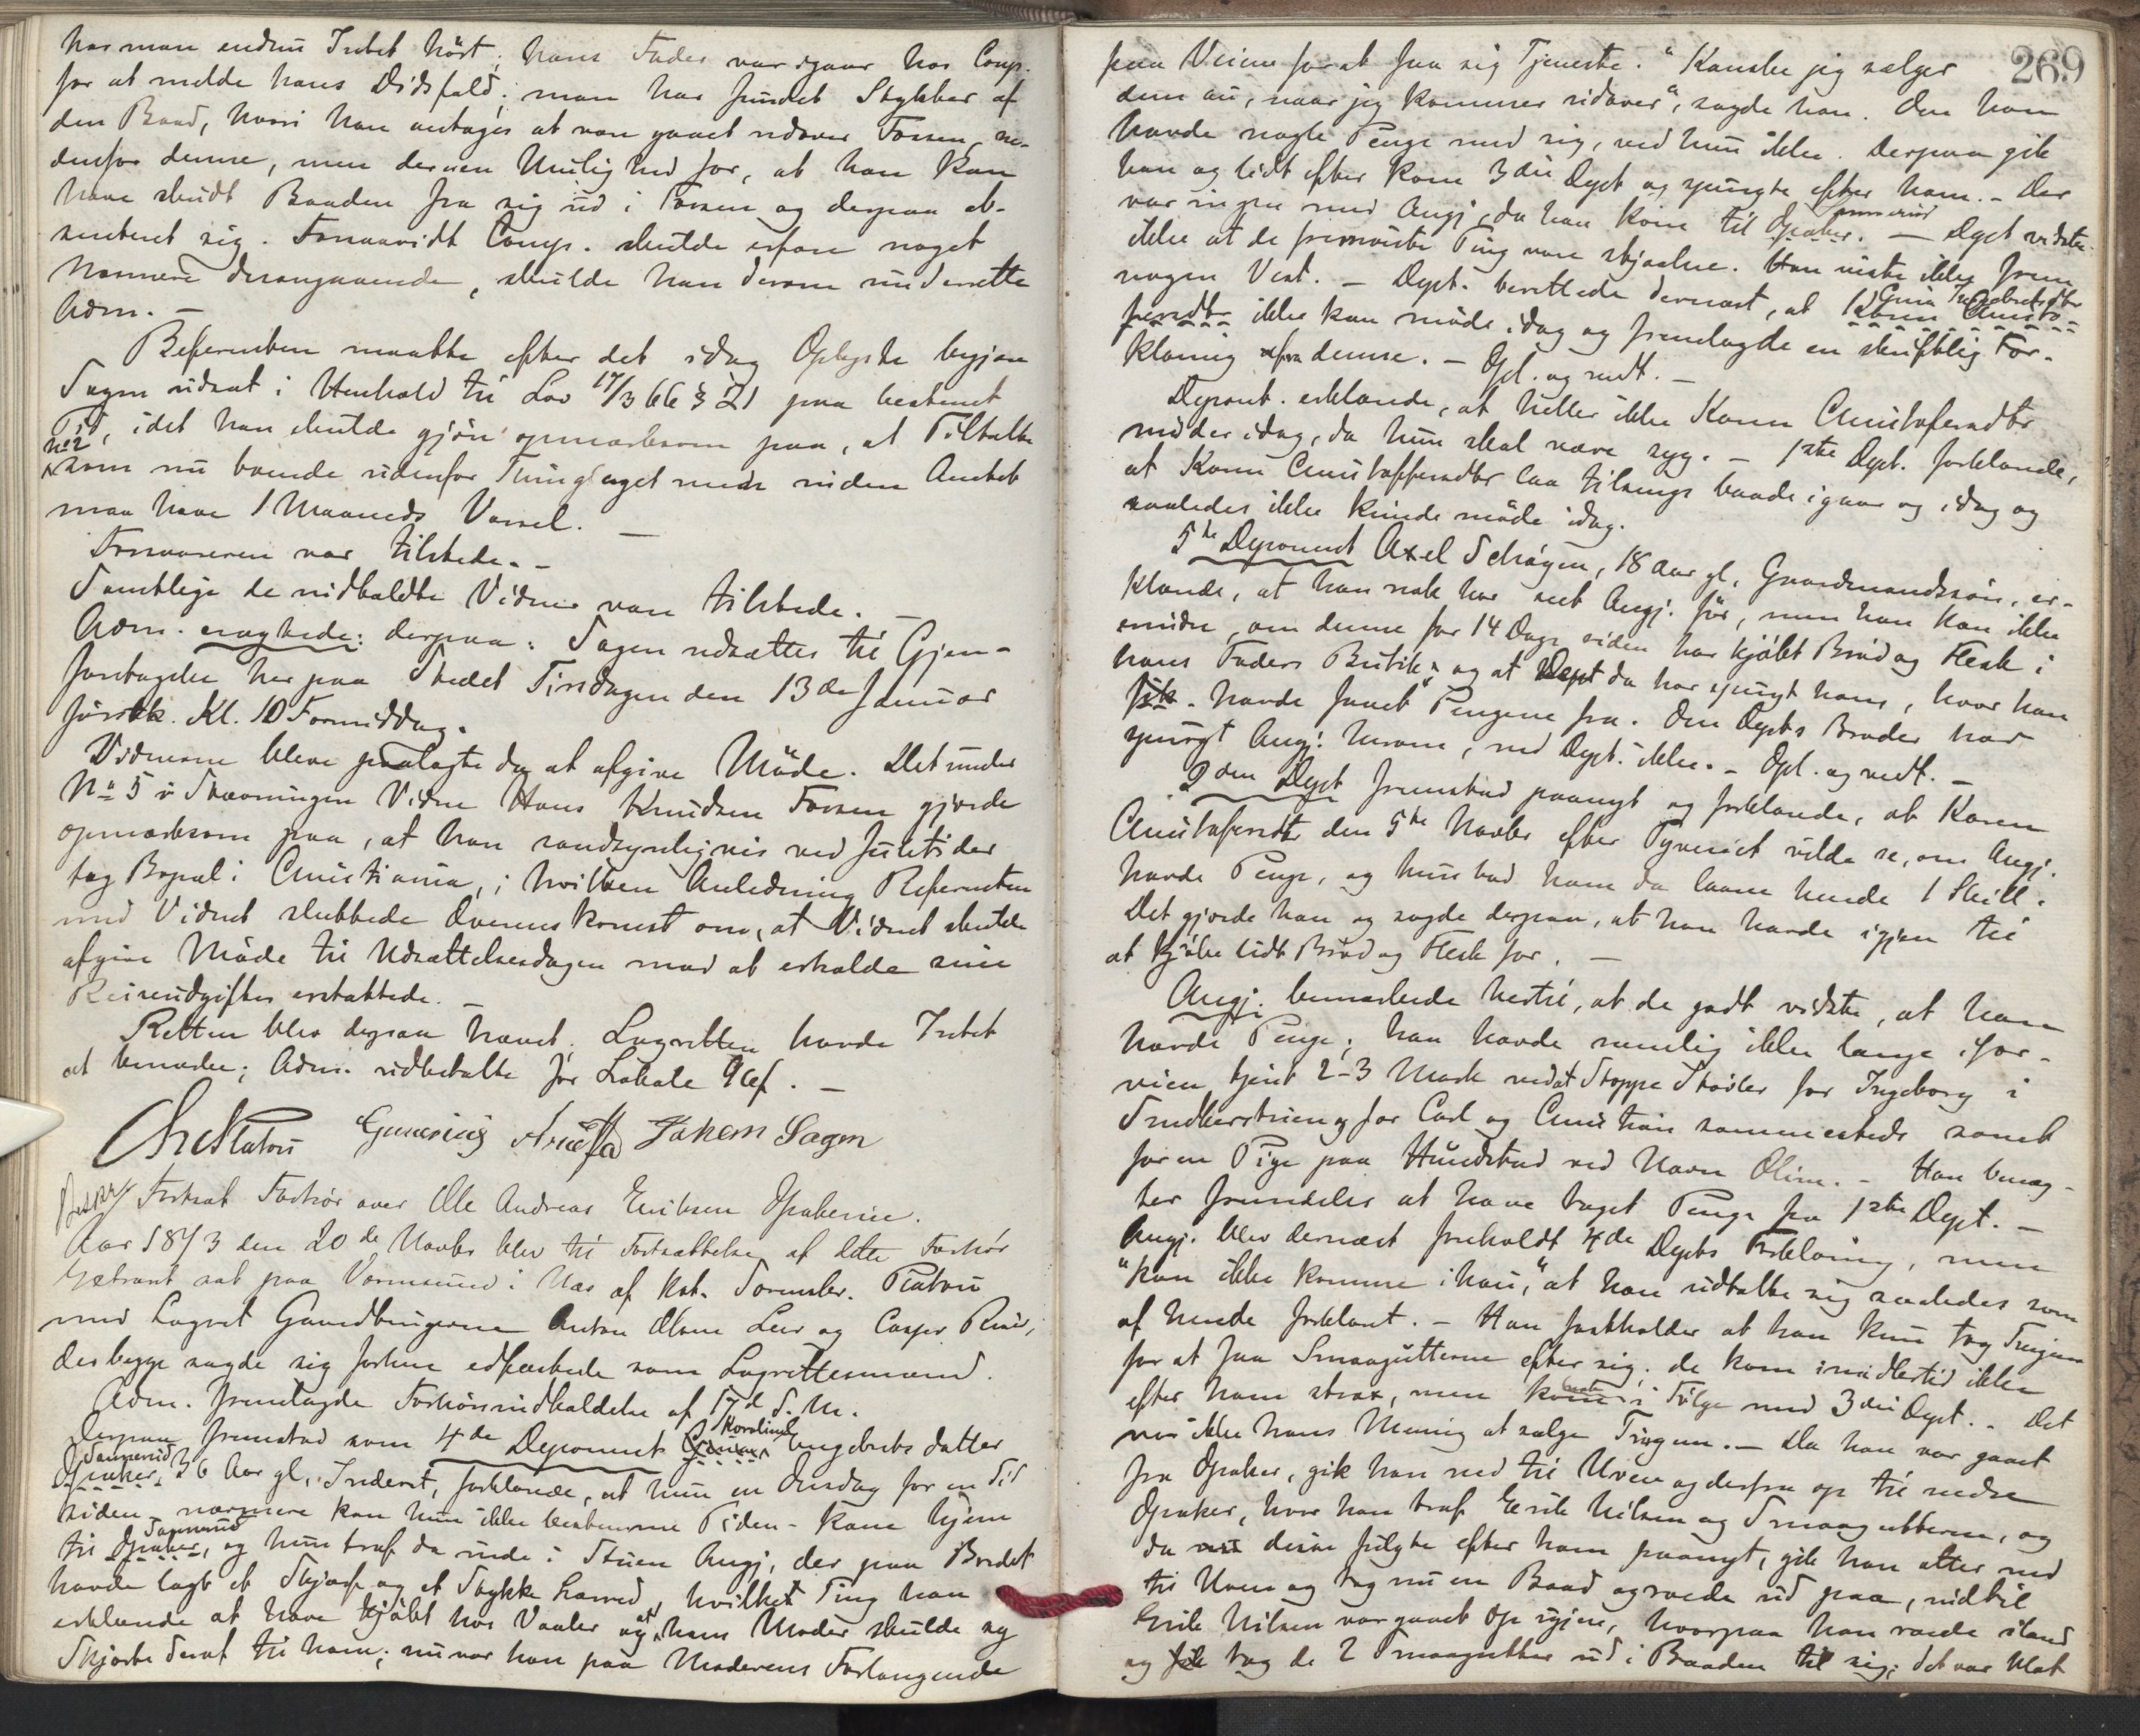 har man endnu Intet hørt; hans Fader var igaar hos Comp.
for at melde hans Dødsfald; man har fundet Stykker af
den Baad, hvori han antages at være gaaet udover Fossen, ne-
denfor denne, men der er en Mulighed for, at han kan
have skudt Baaden fra sig ud i Fossen og derpaa ab-
senteret sig. Forsaavidt Comp. skulde erfare noget
Nærmere desangaaende, skulde han derom underrette
Adm. –
Referenten maatte efter det idag Oplyste begjære
Sagen udsat i Henhold til Lov 17/3 66 § 21 paa bestemt
Tid, idet han skulde gjøre opmærksom paa, at Tiltalte
No 2 som nu boende udenfor Thinglaget men inden Amtet
maa have 1 Maaneds Varsel. –
Forsvareren var tilstede. –
Samtlige de indkaldte Vidner vare tilstede. –
Adm. eragtede: derpaa: Sagen udsættes til Gjen-
foretagelse her paa Stedet Tirsdagen den 13de Januar
førstk. Kl. 10 Formiddag.
Vidnerne bleve paalagte da at afgive Møde. Det under
No 5 i Stævningen Vidne Hans Knudsen Fossen gjorde
opmærksom paa, at han sandsynligvis ved Juletider
tog Bopæl i Christiania, i hvilken Anledning Referenten
med Vidnet sluttede Overenskomst om, at Vidnet skulde
afgive Møde til Udsættelsesdagen mod at erholde sine
Reiseudgifter erstattede. –
Retten blev derpaa hævet. Lagretten havde Intet
at bemærke; Adm. udbetalte for Lokale
Chr Platou Gunerius Jakem Sagen
Fortsat Forhør over Ole Andreas Eriksen Opakerie.
Aar 1873 den 20de Novbr blev til Fortsættelse af dette Forhør
Extraret sat paa Vormsund i Næs af kst. Sorenskr. Platou
med Lagret Gaardbrugerne Anton Olsen Leir og Casper
der begge sagde sig forhen edfæstede som Lagrettesmænd.
Adm. fremlagde Forhørsindkaldelse af 17d d. M.
Derpaa fremstod som 4de Deponent Karoline Engebretsdatter
Opaker, 36 Aar gl., Inderst, forklarede, at hun en Onsdag for en Tid
siden – nærmere kan hun ikke bestemme Tiden – kom hjem
til Opaker, og hun traf da inde i Stuen Angj., der paa Bordet
havde lagt et Skjærf og et Stykke Lærred, hvilket Ting han
erklærede at have kjøbt hos Vaaler og at hans Moder skulde sy
Skjorte deraf til ham; nu var han paa Moderens Forlangende
269
paa Veien for at faa sig Tjeneste. "Kanske jeg sælger
dem au, naar jeg kommer udover", sagde han. Om han
havde nogle Penge med sig, ved hun ikke. Derpaa gik
han og lidt efter kom 3die Dept og spurgte efter ham. – Der
var ingen med Angj., da han kom til Opaker. – Dept vidste
ikke at de fremviste Ting vare stjaalne. Han viste ikke frem
nogen Vest. – Dept. berettede dernæst, at Karen Christo-
fersdtr ikke kan møde idag og fremlagde en skriftlig For-
klaring fra denne. – Opl. og vedt. –
Deponent. erklærede, at heller ikke Karen Christofersdtr
møder idag, da hun skal være syg. – 1ste Dept. forklarede,
at Karen Christoffersdtr laa tilsengs baade igaar og idag og
saaledes ikke kunde møde idag.
5te Deponent Axel Schøyen, 18 Aar gl., Gaardmandssøn, er-
klærede, at han nok har seet Angj. før, men han kan ikke
erindre, om denne for 14 Dage siden har kjøbt Brød og Flesk i
hans Faders Butik, og at Dept da har spurgt ham, hvor han
fik. havde faaet Pengene fra. Om Depts Broder har
spurgt Angj. herom, ved Dept. ikke. – Opl. og vedt. –
2den Dept fremstod paanyt og forklarede, at Karen
Christofersdtr den 5te Novbr efter Tyveriet vilde se, om Angj.
havde Penge, og hun bad ham da laane hende 1 Skill.
Det gjorde han og sagde derpaa, at han havde igjen til
at kjøbe lidt Brød og Flesk for. –
Angj. bemærkede hertil, at de godt vidste, at han
havde Penge; han havde nemlig ikke længe i For-
veien tjent 2-3 Mark ved at stoppe Støvler for Ingeborg i
Snekkerstuen og for Carl og Christian sammesteds samt
for en Pige paa Hundstad ved Navn Oline. – Han benæg-
ter fremdeles at have taget Penge fra 1ste Dept. –
Angj. blev dernæst foreholdt 4de Depts Forklaring, men
"kan ikke komme ihau," at han udtalte sig saaledes som
af hende forklaret. – Han fastholder at han kun tog Tingene
for at faa Smaagutterne efter sig; de kom imidlertid ikke
efter ham strax, men kom i Følge med 3die Dept. – Det
var ikke hans Mening at sælge Tingene. – Da han var gaaet
fra Opaker, gik han ned til Uven og derfra op til nedre
Opaker, hvor han traf Erik Nilsen og Smaagutterne, og
da disse fulgte efter ham paanyt, gik han atter ned
til Uven og tog nu en Baad og roede ud paa, indtil
Erik Nilsen var gaaet op igjen, hvorpaa han roede iland
og tog de 2 Smaagutter ud i Baaden til sig; det var blot